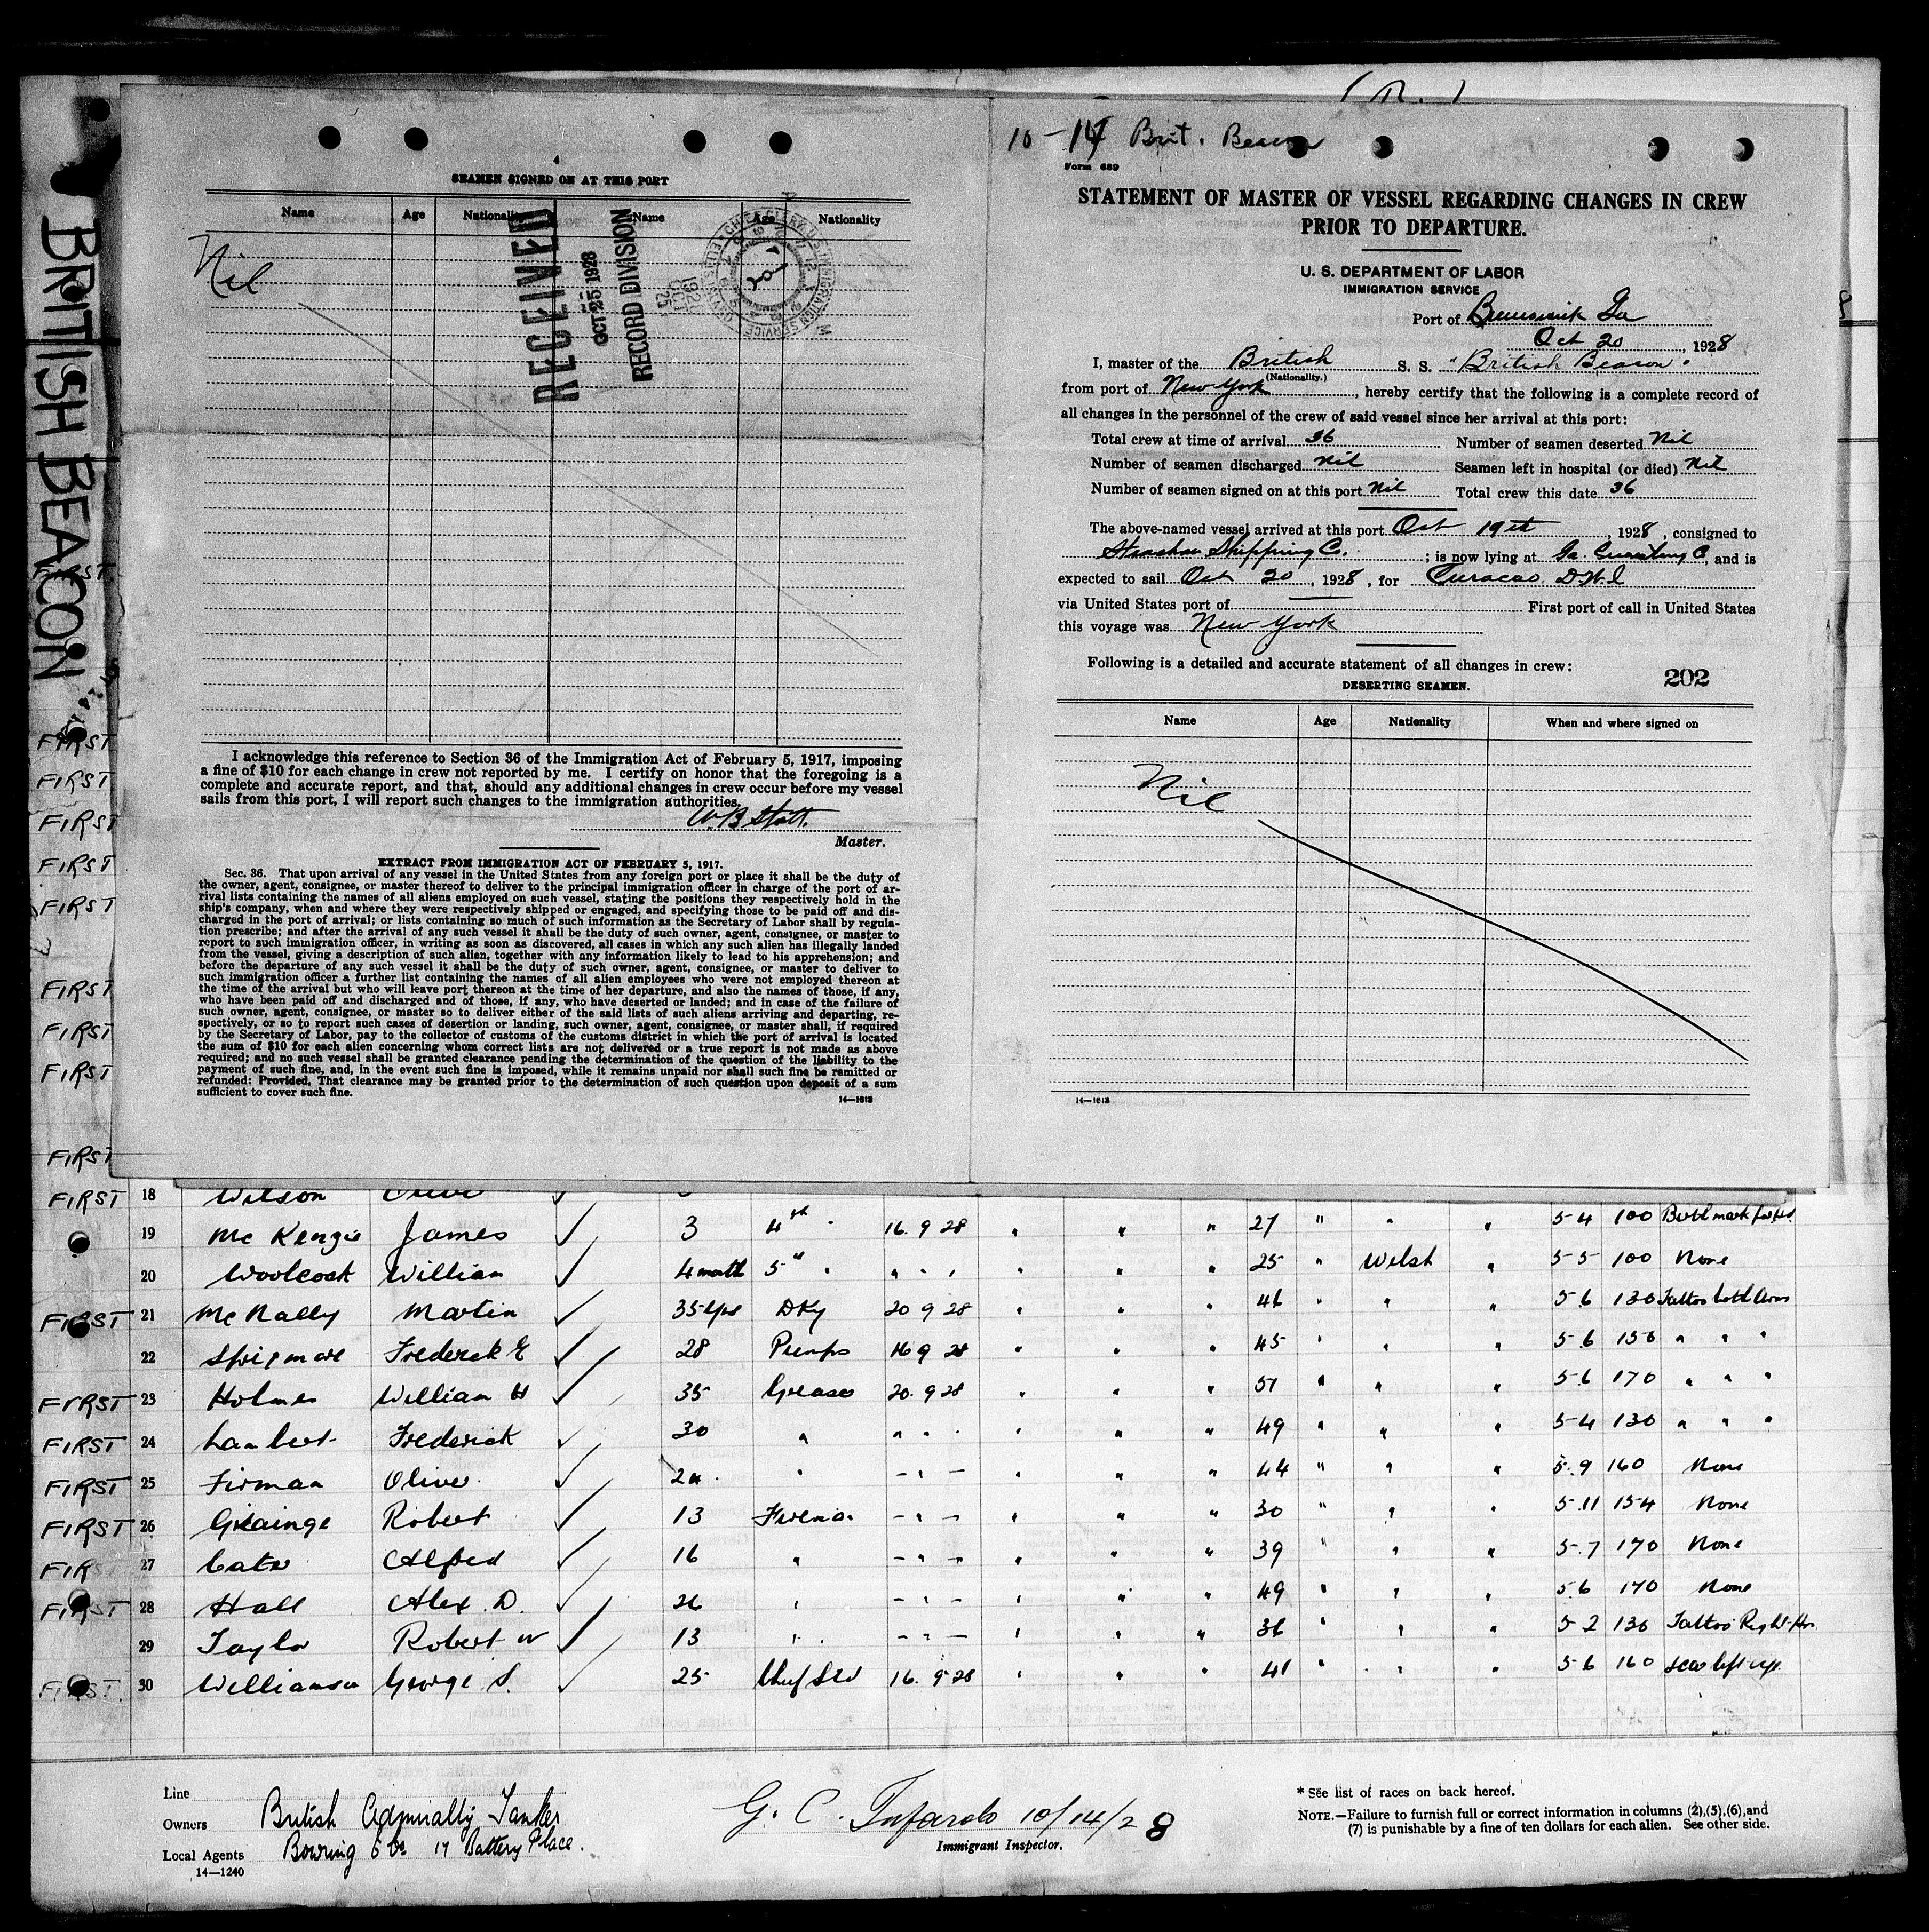 BRITISH BEACON
SEAMEN SIGNED ON AT THIS PORT
Name Age Nationality Name Age Nationality
Nil
RECEIVED
OCT 25 1928
RECORD DIVISION
I acknowledge this reference to Section 36 of the Immigration Act of February 5, 1917, imposing
a fine of $10 for each change in crew not reported by me. I certify on honor that the foregoing is a
complete and accurate report, and that, should any additional changes in crew occur before my vessel
sails from this port, I will report such changes to the immigration authorities.
W. B. Stott.
Master.
EXTRACT FROM IMMIGRATION ACT OF FEBRUARY 5, 1917.
Sec. 36. That upon arrival of any vessel in the United States from any foreign port or place it shall be the duty of
the owner, agent, consignee, or master thereof to deliver to the principal immigration officer in charge of the port of ar-
rival lists containing the names of all aliens employed on such vessel, stating the positions they respectively hold in the
ship's company, when and where they were respectively shipped or engaged, and specifying those to be paid off and dis-
charged in the port of arrival; or lists containing so much of such information as the Secretary of Labor shall by regula-
tion prescribe; and after the arrival of any such vessel it shall be the duty of such owner, agent, consignee, or master to
report to such immigration officer, in writing as soon as discovered, all cases in which any such alien has illegally landed
from the vessel, giving a description of such alien, together with any information likely to lead to his apprehension; and
before the departure of any such vessel it shall be the duty of such owner, agent, consignee, or master to deliver to
such immigration officer a further list containing the names of all alien employees who were not employed thereon at
the time of the arrival but who will leave port thereon at the time of her departure, and also the names of those, if any,
who have been paid off and discharged and of those, if any, who have deserted or landed; and in case of the failure of
such owner, agent, consignee, or master so to deliver either of the said lists of such aliens arriving and departing, re-
spectively, or so to report such cases of desertion or landing, such owner, agent, consignee, or master shall, if required
by the Secretary of Labor, pay to the collector of customs of the customs district in which the port of arrival is located
the sum of $10 for each alien concerning whom correct lists are not delivered or a true report is not made as above
required; and no such vessel shall be granted clearance pending the determination of the question of the liability to the
payment of such fine, and, in the event such fine is imposed, while it remains unpaid nor shall such fine be remitted or
refunded: Provided, That clearance may be granted prior to the determination of such question upon deposit of a sum
sufficient to cover such fine.
14—1613
10 - 14 Brit. Beacon
Form 689
STATEMENT OF MASTER OF VESSEL REGARDING CHANGES IN CREW
PRIOR TO DEPARTURE.
U. S. DEPARTMENT OF LABOR
IMMIGRATION SERVICE
Port of Brunswick Ga
Oct 20, 1928
I, master of the British S. S. "British Beacon"
(Nationality.)
from port of New York, hereby certify that the following is a complete record of
all changes in the personnel of the crew of said vessel since her arrival at this port:
Total crew at time of arrival 36 Number of seamen deserted Nil
Number of seamen discharged Nil Seamen left in hospital (or died) Nil
Number of seamen signed on at this port Nil Total crew this date 36
The above-named vessel arrived at this port Oct 19th, 1928, consigned to
Strachan Shipping Co. ; is now lying at Ga. C, and is
expected to sail Oct 20, 1928, for Curacao. DWI
via United States port of First port of call in United States
this voyage was New York
Following is a detailed and accurate statement of all changes in crew:
DESERTING SEAMEN. 202
Name Age Nationality When and where signed on
Nil
14—1613
FIRST
FIRST
FIRST
FIRST
FIRST
FIRST
FIRST
FIRST
FIRST
FIRST
FIRST 18 Wilson
19 Mc Kenzie James ✓ 3 4th " 16. 9 28 " " " 27 " " " 5-4 100
20 Woolcock William ✓ 4 month 5th " " " " " " " 25 " Welsh " 5-5 100 None
FIRST 21 McNally Martin ✓ 35 yrs DKy 20 9 28 " " " 46 " " " 5.6 130 Tattoo both Arms
22 Frederick E ✓ 28 Pumps 16 9 28 " " " 45 " " " 5-6 150 " " "
FIRST 23 Holmes William H ✓ 35 Greaser 20. 9 28 " " " 51 " " " 5-6 170 " " "
FIRST 24 Lambert Frederick ✓ 30 " " " " " " " 49 " " " 5-4 130 " " "
FIRST 25 Firman Oliver ✓ " - " - " " " 44 " " " 5.9 160 None
FIRST 26 Grainge Robert ✓ 13 Fireman - " - " " " 30 " " " 5.11 154 None
FIRST 27 Alfred ✓ 16 " - " - " " " 39 " " " 5.7 170 None
FIRST 28 Hall Alex. D. ✓ 26 " - " - " " " 49 " " " 5 6 170 None
29 Taylor Robert W ✓ 13 " - " - " " " 36 " " " 5 2 130 Tattoo Right Arm
FIRST 30 Williamson George S. ✓ 25 Chief Std 16. 9 28 " " " 41 " " " 5 6 160 Scar left
Line
Owners British Admiralty Tanker
Local Agents Bowring & Co 17 Battery Place.
14—1240
G. C. 10/14/28
Immigrant Inspector.
* See list of races on back hereof.
NOTE.—Failure to furnish full or correct information in columns (2), (5), (6), and
(7) is punishable by a fine of ten dollars for each alien. See other side.